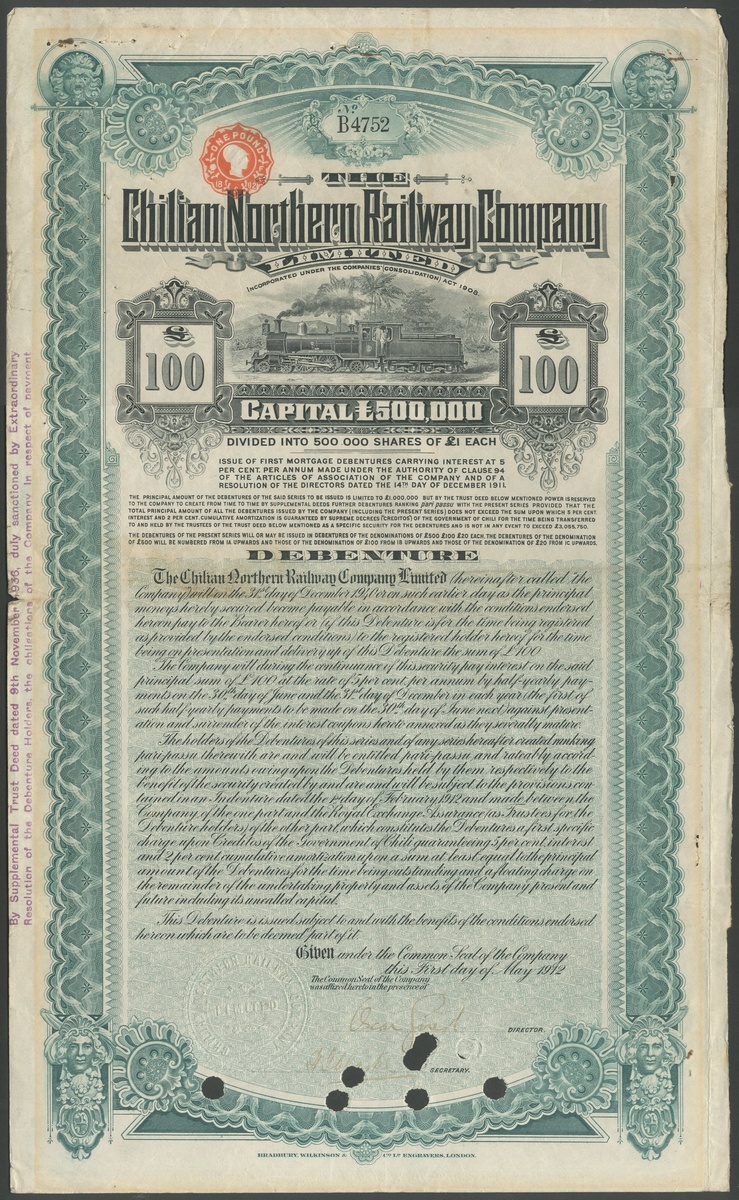 No
B4752
ONE POUND
THE
Chilian Northern Railway Company
LIMITED
INCORPORATED UNDER THE COMPANIES (CONSOLIDATION) ACT 1908.
£
100
£
100
CAPITAL £500,000
DIVIDED INTO 500 000 SHARES OF £1 EACH
ISSUE OF FIRST MORTGAGE DEBENTURES CARRYING INTEREST AT 5
PER CENT. PER ANNUM MADE UNDER THE AUTHORITY OF CLAUSE 94
OF THE ARTICLES OF ASSOCIATION OF THE COMPANY AND OF A
RESOLUTION OF THE DIRECTORS DATED THE 14TH DAY OF DECEMBER 1911.
THE PRINCIPAL AMOUNT OF THE DEBENTURES OF THE SAID SERIES TO BE ISSUED IS LIMITED TO £1,000,000 BUT BY THE TRUST DEED BELOW MENTIONED POWER IS RESERVED
TO THE COMPANY TO CREATE FROM TIME TO TIME BY SUPPLEMENTAL DEEDS FURTHER DEBENTURES RANKING pari passu WITH THE PRESENT SERIES PROVIDED THAT THE
TOTAL PRINCIPAL AMOUNT OF ALL THE DEBENTURES ISSUED BY THE COMPANY (INCLUDING THE PRESENT SERIES) DOES NOT EXCEED THE SUM UPON WHICH 5 PER CENT.
INTEREST AND 2 PER CENT. CUMULATIVE AMORTIZATION IS GUARANTEED BY SUPREME DECREES ("CREDITOS") OF THE GOVERNMENT OF CHILI FOR THE TIME BEING TRANSFERRED
TO AND HELD BY THE TRUSTEES OF THE TRUST DEED BELOW MENTIONED AS A SPECIFIC SECURITY FOR THE DEBENTURES AND IS NOT IN ANY EVENT TO EXCEED £3,065,750.
THE DEBENTURES OF THE PRESENT SERIES WILL OR MAY BE ISSUED IN DEBENTURES OF THE DENOMINATIONS OF £500 £100 £20 EACH. THE DEBENTURES OF THE DENOMINATION
OF £500 WILL BE NUMBERED FROM 1A UPWARDS AND THOSE OF THE DENOMINATION OF £100 FROM 1B UPWARDS AND THOSE OF THE DENOMINATION OF £20 FROM 1C UPWARDS.
DEBENTURE
The Chilian Northern Railway Company Limited (hereinafter called "the
Company) will on the 31st day of December 1940 or on such earlier day as the principal
moneys hereby secured become payable in accordance with the conditions endorsed
hereon pay to the Bearer hereof or (if this Debenture is for the time being registered
as provided by the endorsed conditions) to the registered holder hereof for the time
being on presentation and delivery up of this Debenture the sum of £100
The Company will during the continuance of this security pay interest on the said
principal sum of £100 at the rate of 5 per cent per annum by half-yearly pay-
ments on the 30th day of June and the 31st day of December in each year (the first of
such half yearly payments to be made on the 30th day of June next) against present-
ation and surrender of the interest coupons hereto annexed as they severally mature.
The holders of the Debentures of this series and of any series hereafter created ranking
pari passu therewith are and will be entitled pari passu and rateably accord-
ing to the amounts owing upon the Debentures held by them respectively to the
benefit of the security created by and are and will be subject to the provisions con-
tained in an Indenture dated the 1st day of February 1912 and made between the
Company of the one part and the Royal Exchange Assurance (as Trustees for the
Debenture holders) of the other part, which constitutes the Debentures a first specific
charge upon Creditos of the Government of Chili guaranteeing 5 per cent. interest
and 2 per cent. cumulative amortisation upon a sum at least equal to the principal
amount of the Debentures for the time being outstanding and a floating charge on
the remainder of the undertaking property and assets of the Company present and
future including its uncalled capital.
This Debenture is issued subject to and with the benefits of the conditions endorsed
hereon which are to be deemed part of it.
Given under the Common Seal of the Company
this First day of May 1912
The Common Seal of the Company
was affixed hereto in the presence of
DIRECTOR.
SECRETARY.
LIMITED
BRADBURY, WILKINSON & Co. Ld. ENGRAVERS, LONDON.
By Supplemental Trust Deed dated 9th November 1936, duly sanctioned by Extraordinary
Resolution of the Debenture Holders, the obligations of the Company in respect of payment